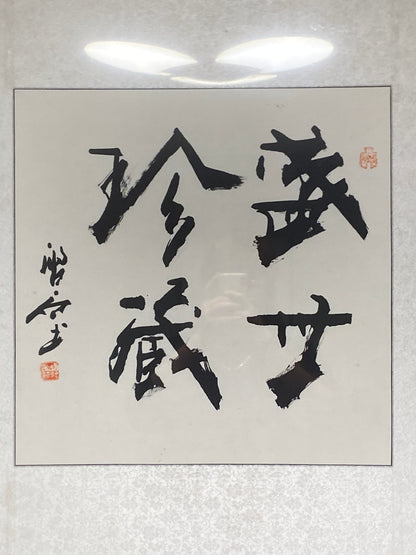 盛世
珍藏